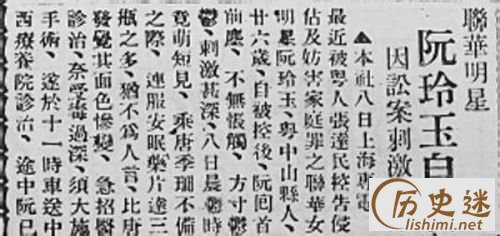 聯華明星
阮玲玉自
因訟案刺激
▲本社八日上海專電
最近被粤人張達民控告侵
佔及妨害家庭罪之聯華女
明星阮玲玉、粤中山縣人、
廿六歲、自被控後、阮囘首
前塵、不無悵觸、方寸鬱
鬱、刺激甚深、八日晨時
竟萌短見、乘唐季珊不備
之際、連服安眠藥片達三
瓶之多、猶不爲人言、比唐
發覺其面色慘變、急招醫
診治、奈受毒過深、須大施
手術、遂於十一時車送中
西療養院診治、途中阮已
历史迷
lishimi.net